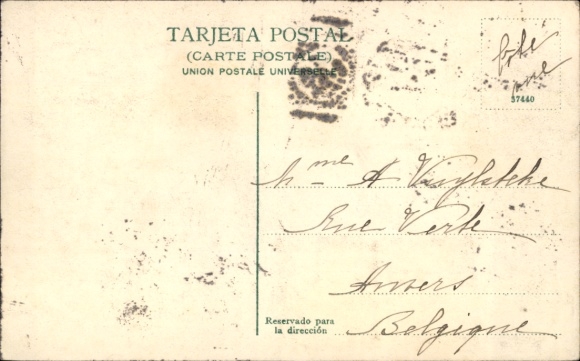 TARJETA POSTAL
(CARTE POSTALE)
UNION POSTALE UNIVERSELLE
côté
vue
37440
Mme A
Rue Verte
Anvers
Belgique
Reservado para
la dirección